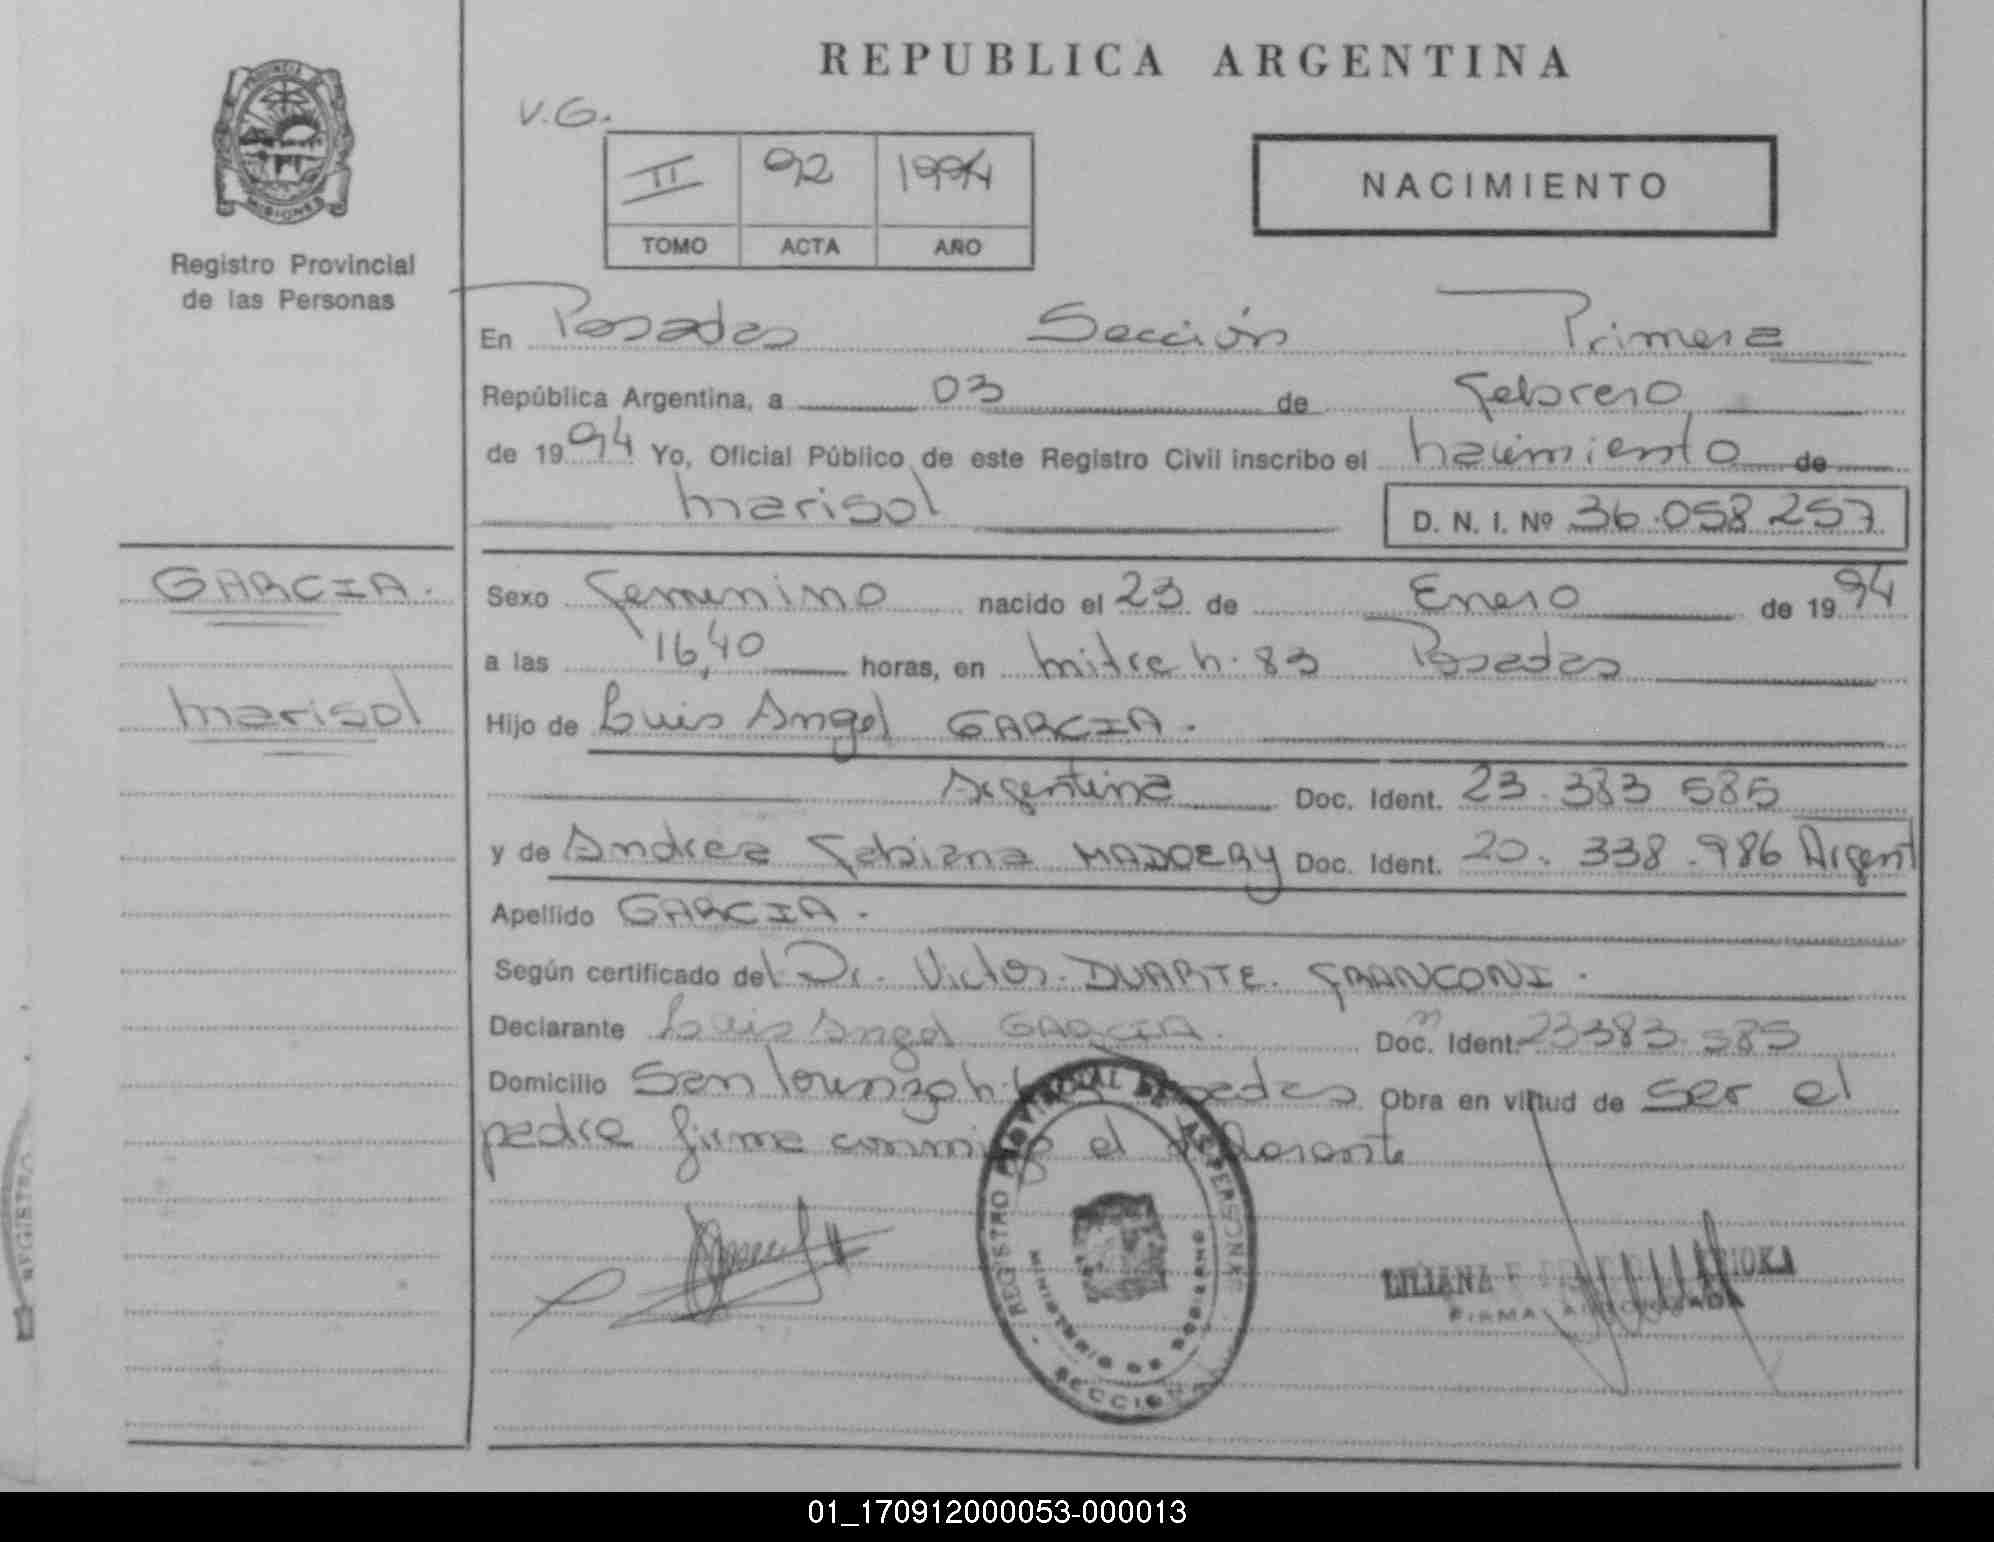 REPUBLICA ARGENTINA
V.G.
PROVINCIA
MISIONES
Registro Provincial
de las Personas
II 92 1994
TOMO ACTA AÑO
NACIMIENTO
En Posadas Sección Primera
República Argentina, a 03 de Febrero
de 1994 Yo, Oficial Público de este Registro Civil inscribo el nacimiento de
Marisol D. N. I. Nº 36.058.257
GARCIA.
Marisol
Sexo Femenino nacido el 23 de Enero de 1994
a las 16,40 horas, en Mitre n. 83 Posadas
Hijo de Luis Angel GARCIA.
Argentina Doc. Ident. 23.383 585
y de Andrea Fabiana MADDERY Doc. Ident. 20.338.986 Argent
Apellido GARCIA.
Según certificado del Dr. Victor DUARTE. FRANCONI.
Declarante Luis Angel GARCIA. Doc. Ident. 23383.585
Domicilio San Lorenzo n. Obra en virtud de ser el
padre firma conmigo el
REGISTRO PROVINCIAL DE LAS PERSONAS
MINISTERIO DE GOBIERNO
SECCION
LILIANA
FIRMA AUTORIZADA
REGISTRO
01_170912000053-000013